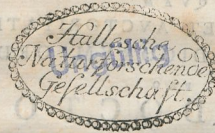 Hallesche
Naturforschende
Gesellschaft.